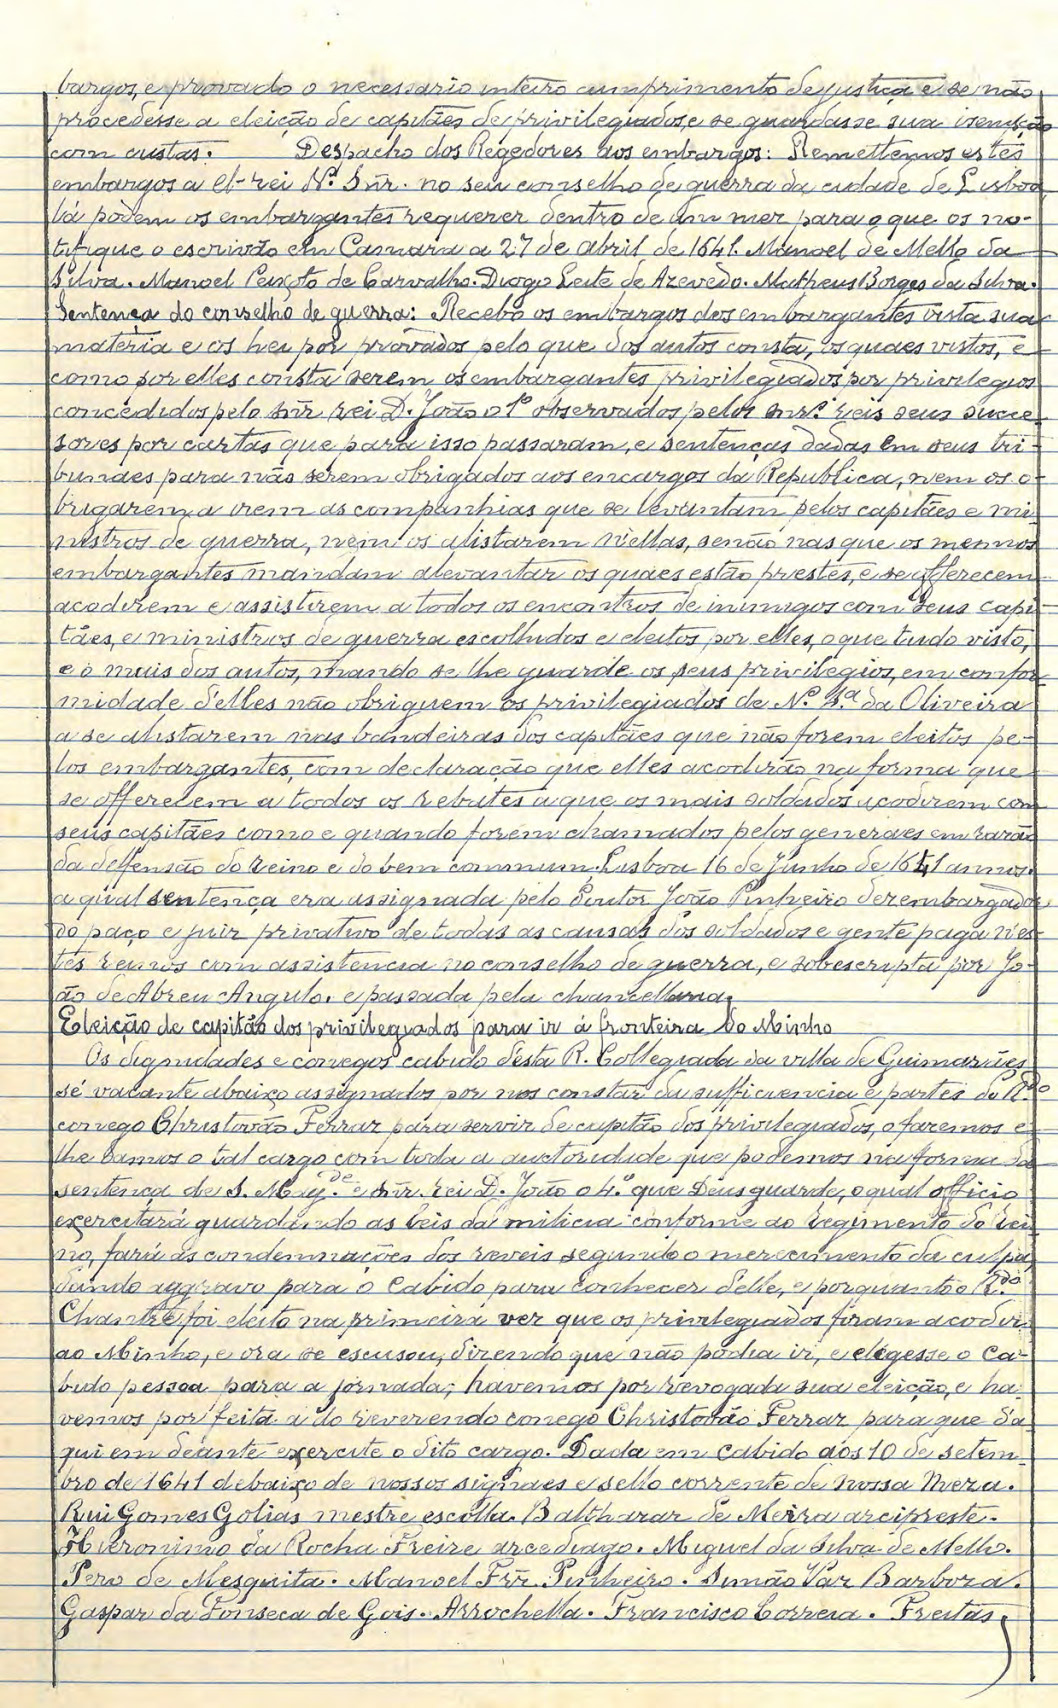 bargos, e provado o necessario inteiro cumprimento de justiça e se não
procedesse a eleição de capitães de privilegiados, e se guardasse sua isenção
com custas. Despacho dos Regedores aos embargos: Remettemos estes
embargos a el-rei N. Snr. no seu conselho de guerra da cidade de Lisboa,
lá podem os embargantes requerer dentro de um mez para o que os no-
tifique o escrivão em Camara a 27 de abril de 1641. Manoel de Mello da
Silva. Manoel Peixoto de Carvalho. Diogo Leite de Azevedo. Matheus Borges da Silva.
Sentença do conselho de guerra: Recebo os embargos dos embargantes vista sua
materia e os hei por provados pelo que dos autos consta, os quaes vistos, e
como por elles consta serem os embargantes privilegiados por privilegios
concedidos pelo snr. rei D. João o 1º observados pelos snrs. reis seus succe-
sores por cartas que para isso passaram, e sentenças dadas em seus tri-
bunaes para não serem obrigados aos encargos da Republica, nem os o-
brigarem a irem as companhias que se levantam pelos capitães e mi-
nistros de guerra, nem os alistarem n'ellas, senão nas que os mesmos
embargantes mandam alevantar os quaes estão prestes, e se offerecem
acodirem e assistirem a todos os encontros de inimigos com seus capi-
tães, e ministros de guerra escolhidos e eleitos por elles, o que tudo visto,
e o mais dos autos, mando se lhe guarde os seus privilegios, em confor-
midade d'elles não obriguem os privilegiados de N.ª S.ª da Oliveira
a se alistarem nas bandeiras dos capitães que não forem eleitos pe-
los embargantes, com declaração que elles acodirão na forma que
se offerecem a todos os rebates a que os mais soldados acodirem com
seus capitães como e quando forem chamados pelos generaes em razão
da deffensão do reino e do bem commum. Lisboa 16 de Junho de 1641 annos.
a qual sentença era assignada pelo Doutor João Pinheiro dezembargador
do paço e juiz privativo de todas as causas dos soldados e gente paga n'es-
tes reinos com assistencia no conselho de guerra, e sobescripta por Jo-
ão de Abreu Angulo. e passada pela chancellaria.
Eleição de capitão dos privilegiados para ir á fronteira do Minho
Os dignidades e conegos cabido d'esta R. Collegiada da villa de Guimarães
sé vacante abaixo assignados por nos constar da sufficiencia e partes do R.do
conego Christovão Ferraz para servir de capitão dos privilegiados, o fazemos e
lhe damos o tal cargo com toda a auctoridade que podemos na forma da
sentença de S. Mag.de e snr. rei D. João o 4.º que Deus guarde, o qual officio
exercitará guardando as leis da milicia conforme ao regimento do rei-
no, fará as condemnações dos reveis segundo o merecimento da culpa,
dando aggravo para o Cabido para conhecer d'elle, e porquanto o R.do
Chantre foi eleito na primeira vez que os privilegiados foram acodir
ao Minho, e ora se escusou, dizendo que não podia ir, e elegesse o Ca-
bido pessoa para a jornada; havemos por revogada sua eleição, e ha-
vemos por feita a do reverendo conego Christovão Ferraz para que d'a-
qui em deante exercite o dito cargo. Dada em cabido aos 10 de setem-
bro de 1641 debaixo de nossos signaes e sello corrente de nossa meza.
Rui Gomes Golias mestre escolla. Balthazar de Meira arcipreste.
Hieronimo da Rocha Freire arcediago. Miguel da Silva de Mello.
Pero de Mesquita. Manoel Frz. Pinheiro. Simão Vaz Barboza.
Gaspar da Fonseca de Gois. Arrochella. Francisco Correia. Freitas